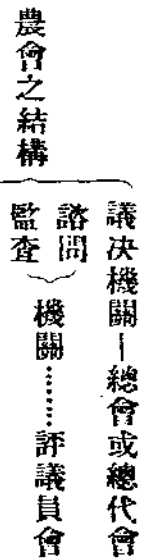 農會之結構
議決機關—總會或總代會
諮問
監查
機關………評議員會